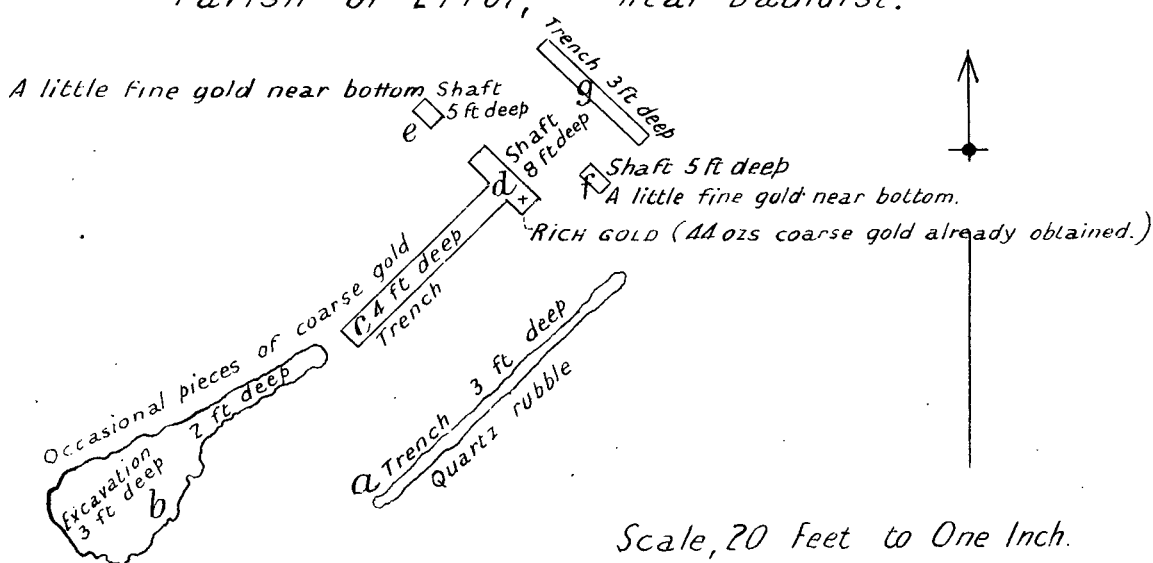 near
A little fine gold near bottom
Shaft
5 ft deep
e
Trench 3 ft deep
g
Shaft
8 ft deep
d
+
Shaft 5 ft deep
f
A little fine gold near bottom.
RICH GOLD (44 ozs coarse gold already obtained.)
Occasional pieces of coarse gold
C 4 ft deep
Trench
2 ft deep
Excavation
3 ft deep
b
a Trench 3 ft deep
Quartz rubble
Scale, 20 Feet to One Inch.